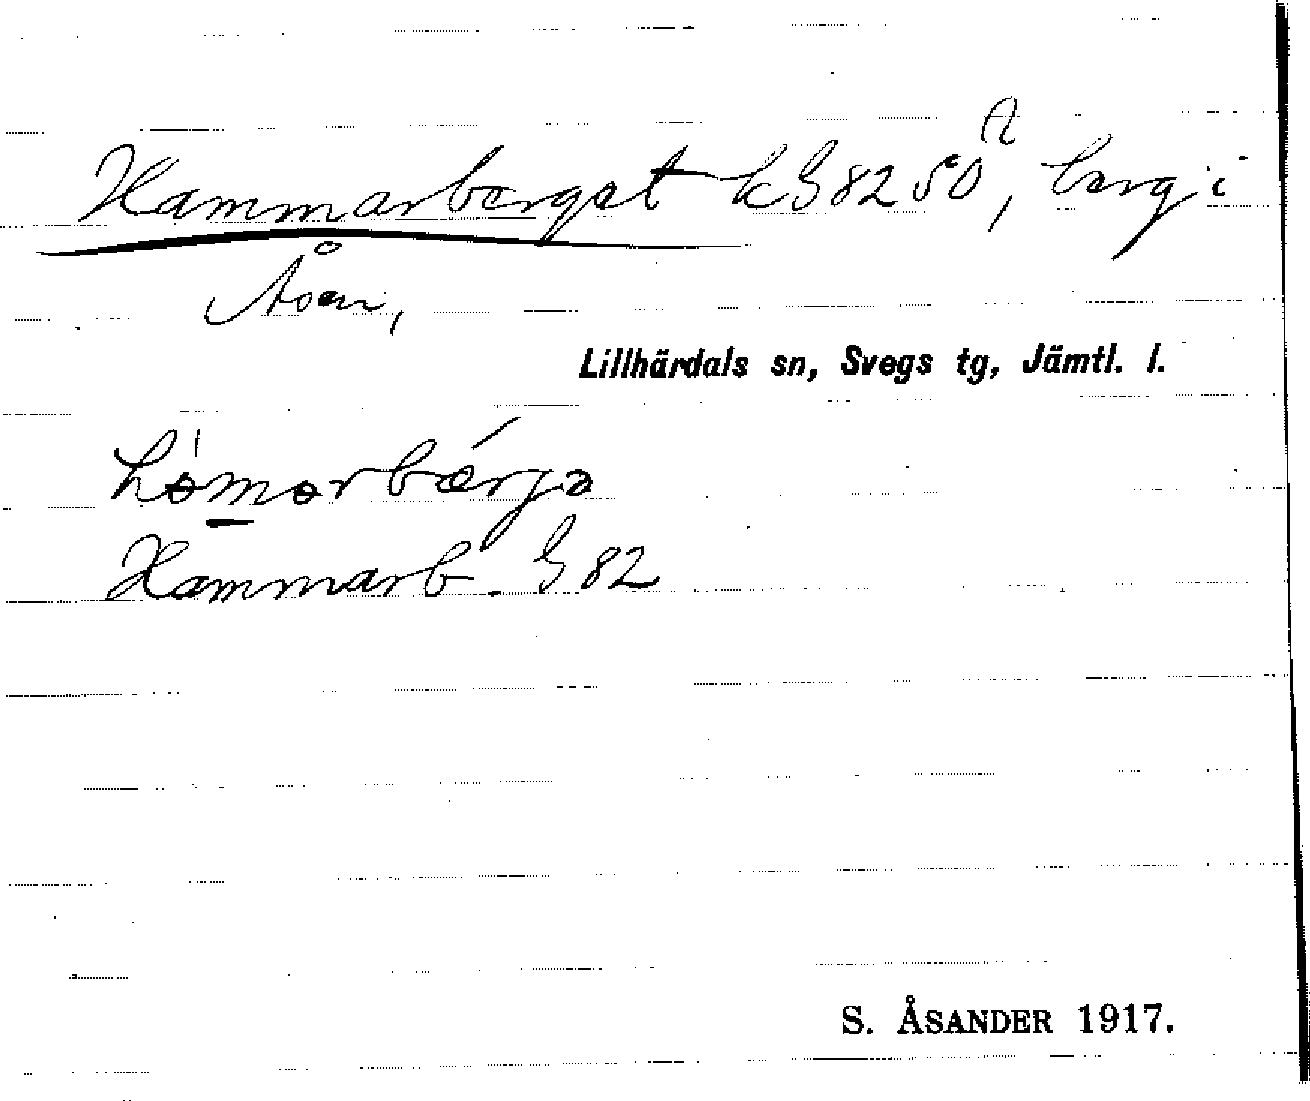 Hammarberget k G 82 50 A, berg i
Åsen,
Lillhärdals sn, Svegs tg, Jämtl. l.
Hammarb. G 82
S. ÅSANDER 1917.